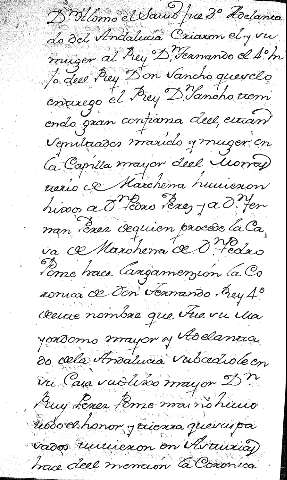 Dn Alonso el Savio fue Dn Adelanta
do del Andalucia Criaron el y su
muger al Rey Dn Fernando el 4º hi
jo del Rey Don Sancho que se lo
entrego el Rey Dn Sancho ten
iendo gran confianza del, estan
sepultados marido y muger en
la Capilla mayor del Monas
terio de Marchena huvieron
hixos a Dn Pedro Perez y a Dn Fer
nan Perez de quien procede la Ca
sa de Marchena de Dn Pedro
Ponze hace larga mencion la Co
ronica de Don Fernando Rey 4º
de este nombre que fue su Ma
yordomo mayor y Adelanta
do de la Andalucia subcediole en
su Casa su hixo mayor Dn
Ruy Perez Ponze
todo el honor y tierra que sus pa
sados tuvieron en Asturias
hace del mencion la Coronica